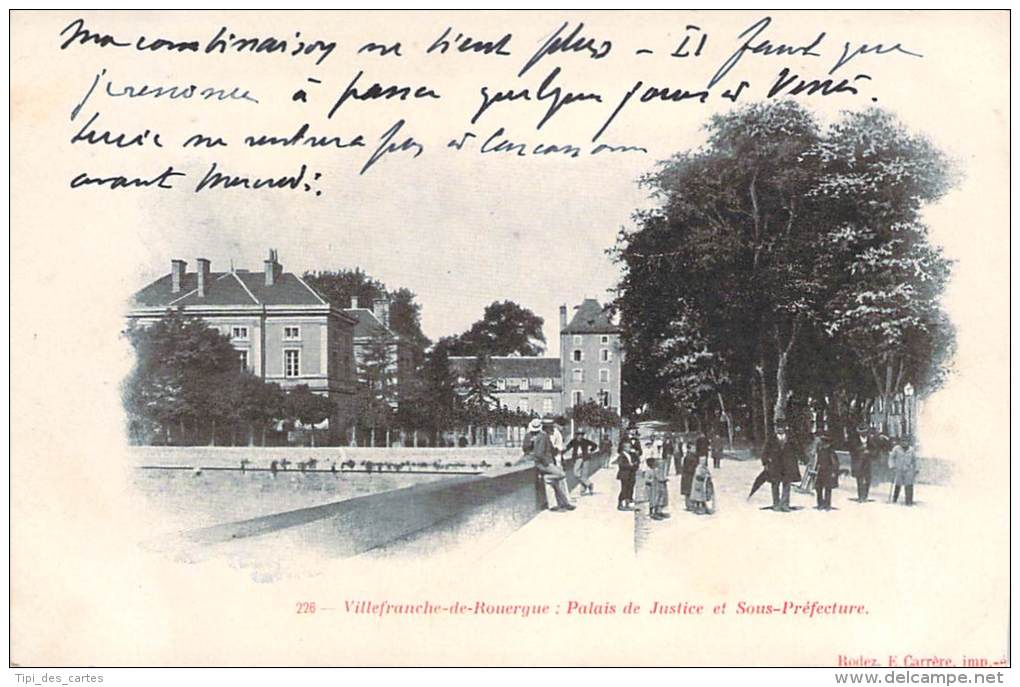 Ma combinaison ne tient plus – Il faut que
je renonce à passer quelques jours à
Lucie ne rentrera pas à Carcassonne
avant Mercredi.
226 — Villefranche-de-Rouergue : Palais de Justice et Sous-Préfecture.
Rodez, E. Carrère, imp.-é
Tipi_des_cartes
www.delcampe.net